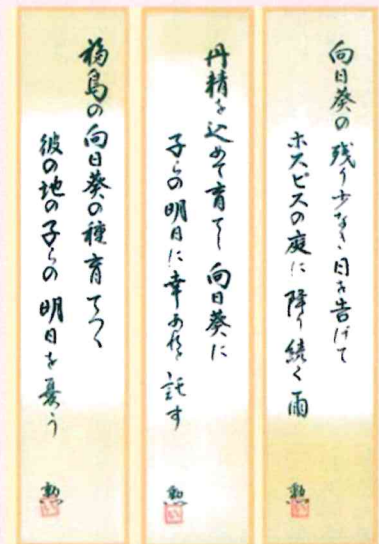 向日葵の残り少なき日を告げて
ホスピスの庭に降り続く雨
勲
丹精を込めて育てし向日葵に
子らの明日に幸あれと託す
勲
福島の向日葵の種育てつゝ
彼の地の子らの明日を憂う
勲